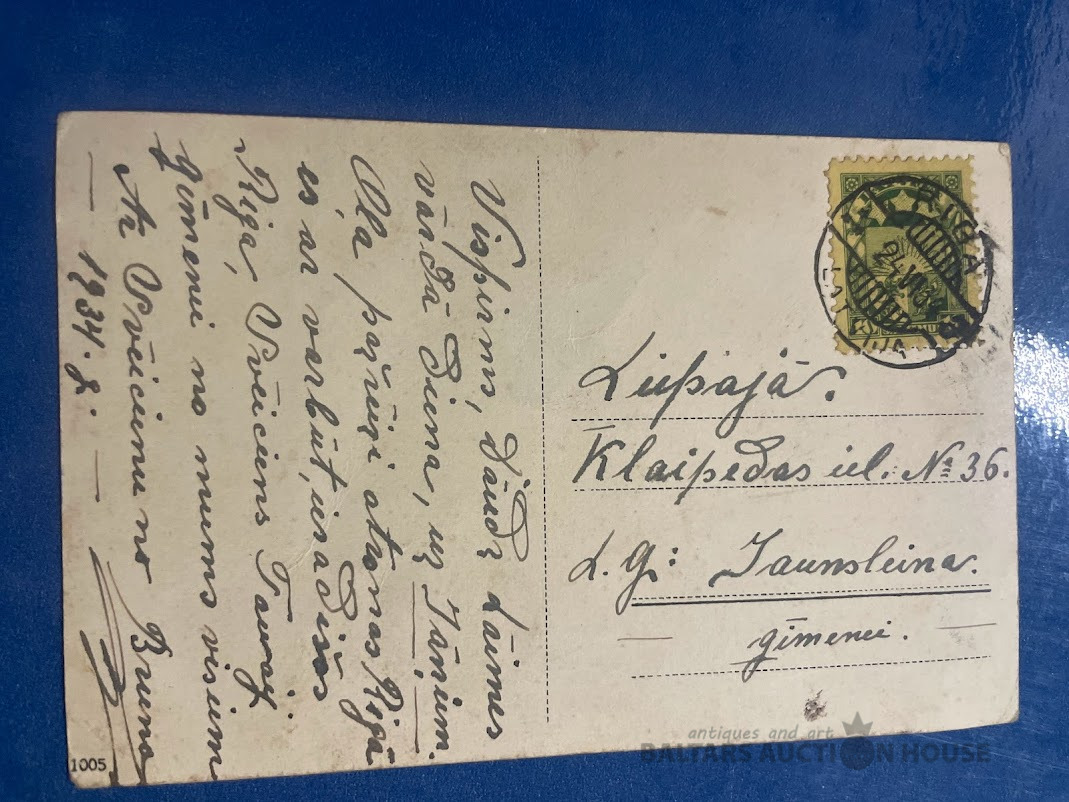 Vispirms, daudz Laimes
vārda diena, uz Jāņiem.
Ola pašreiz atronas Rīgā
es, ar varbūt, ieradīsos
Rīgā, Sveiciens Tavaj
ģimenei no mums visiem
Ar Sveicienu no Bruno
— 1934. g. —
RIGA
LATVIJA
Liepajā.
Klaipedas iel. № 36.
L. G: Jaunsleina.
— ģimenei. —
1005
antiques and art
BALTARS AUCTION HOUSE